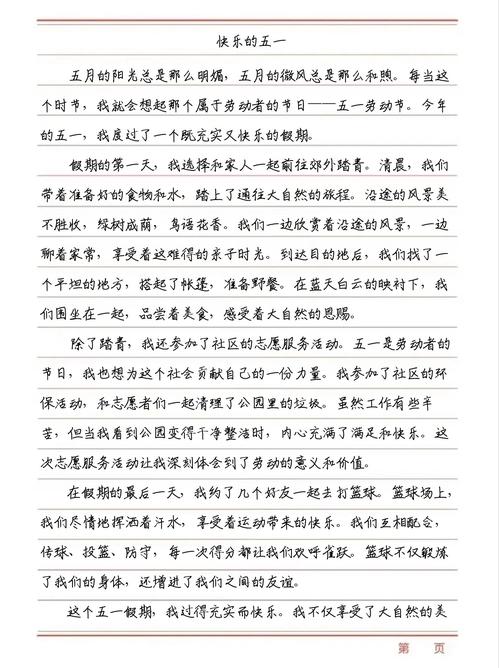 快乐的五一
五月的阳光总是那么明媚，五月的微风总是那么和煦。每当这
个时节，我就会想起那个属于劳动者的节日——五一劳动节。今年
的五一，我度过了一个既充实又快乐的假期。
假期的第一天，我选择和家人一起前往郊外踏青。清晨，我们
带着准备好的食物和水，踏上了通往大自然的旅程。沿途的风景美
不胜收，绿树成荫，鸟语花香。我们一边欣赏着沿途的风景，一边
聊着家常，享受着这难得的亲子时光。到达目的地后，我们找了一
个平坦的地方，搭起了帐篷，准备野餐。在蓝天白云的映衬下，我
们围坐在一起，品尝着美食，感受着大自然的恩赐。
除了踏青，我还参加了社区的志愿服务活动。五一是劳动者的
节日，我也想为这个社会贡献自己的一份力量。我参加了社区的环
保活动，和志愿者们一起清理了公园里的垃圾。虽然工作有些辛
苦，但当我看到公园变得干净整洁时，内心充满了满足和快乐。这
次志愿服务活动让我深刻体会到了劳动的意义和价值。
在假期的最后一天，我约了几个好友一起去打篮球。篮球场上，
我们尽情地挥洒着汗水，享受着运动带来的快乐。我们互相配合，
传球、投篮、防守，每一次得分都让我们欢呼雀跃。篮球不仅锻炼
了我们的身体，还增进了我们之间的友谊。
这个五一假期，我过得充实而快乐。我不仅享受了大自然的美
第 页